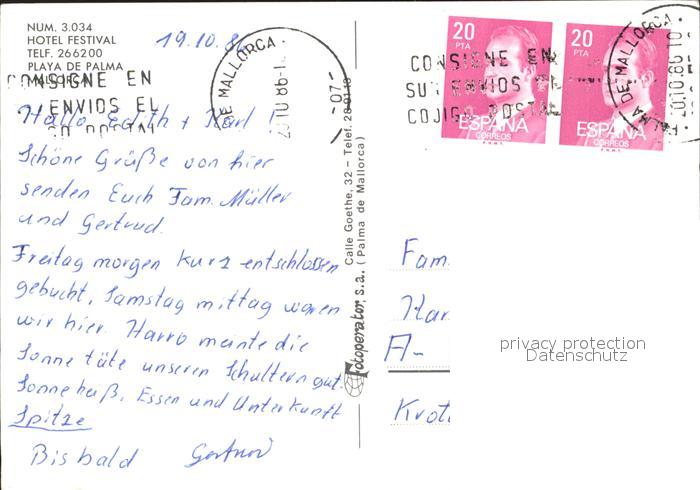 NUM. 3.034
HOTEL FESTIVAL
TELF. 266200
PLAYA DE PALMA
MALLORCA
19.10.86
CONSIGNE EN
ENVIOS EL
DE MALLORCA
-07-
Hallo Edith + Karl!
Schöne Grüße von hier
senden Euch Fam. Müller
und Gertrud.
Freitag morgen kurz entschlossen
gebucht, Samstag mittag waren
wir hier. Harro meinte die
Sonne täte unseren Schultern gut.
Sonne heiß, Essen und Unterkunft
Spitze
Bis bald Gertrud
Fotoperator, s.a.
Calle Goethe, 32 - Telef. 28 01 10
(Palma de Mallorca)
20 PTA
ESPAÑA
CORREOS
20 PTA
ESPAÑA
CORREOS
CONSIGNE EN
SUS ENVIOS EL
CODIGO POSTAL
PALMA DE MALLORCA
20.10.86
Fam
Kar
A-
Krot
privacy protection
Datenschutz